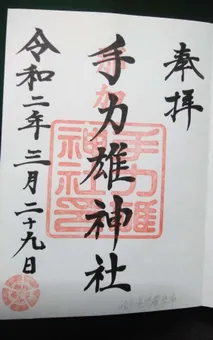 奉拝
手力雄神社
令和二年三月二十九日
手力雄
神社印